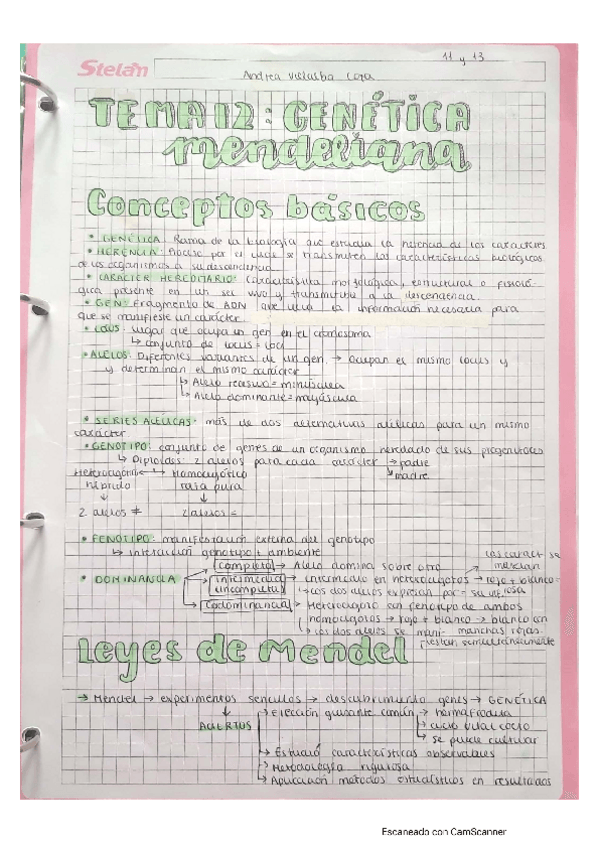 Stelan
11 y 13
Andrea Villalba Lora
TEMA 12: GENÉTICA
mendeliana
Conceptos básicos
• GENÉTICA: Rama de la biología que estudia la herencia de los caracteres
• HERENCIA: Proceso por el cual se transmiten las características biológicas
de los organismos a su descendencia.
• CARÁCTER HEREDITARIO: Característica morfológica, estructural o fisioló-
gica presente en un ser vivo y transmitible a la descendencia.
• GEN: Fragmento de ADN que lleva la información necesaria para
que se manifieste un carácter.
• LOCUS: lugar que ocupa un gen en el cromosoma
↳ conjunto de locus = loci
• ALELOS: Diferentes variantes de un gen → ocupan el mismo locus y
y determinan el mismo carácter
↳ Alelo recesivo = minúscula
↳ Alelo dominante = mayúscula
• SERIES ALÉLICAS: más de dos alternativas alélicas para un mismo
carácter
• GENOTIPO: conjunto de genes de un organismo heredado de sus progenitores
↳ Diploides: 2 alelos para cada carácter → padre
↘ madre
Heterocigótico ← → Homocigótico
híbrido raza pura
↓ ↓
2 alelos ≠ 2 alelos =
• FENOTIPO: manifestación externa del genotipo
↳ interacción genotipo + ambiente
• DOMINANCIA
completa → Alelo domina sobre otro
intermedia → intermedio en heterocigotos → rojo + blanco =
incompleta → los dos alelos expresan por = su rosa
las caract se
mezclan
Codominancia → Heterocigoto con fenotipo de ambos
homocigotos → rojo + blanco → blanco con
→ los dos alelos se mani- manchas rojas.
fiestan simultáneamente
Leyes de Mendel
→ Mendel → experimentos sencillos → descubrimiento genes → GENÉTICA
↓
ACIERTOS
→ Elección guisante común → hermafrodita
→ ciclo vital corto
→ se puede cultivar
→ Estudió características observables
→ Metodología rigurosa
→ Aplicación métodos estadísticos en resultados
Escaneado con CamScanner